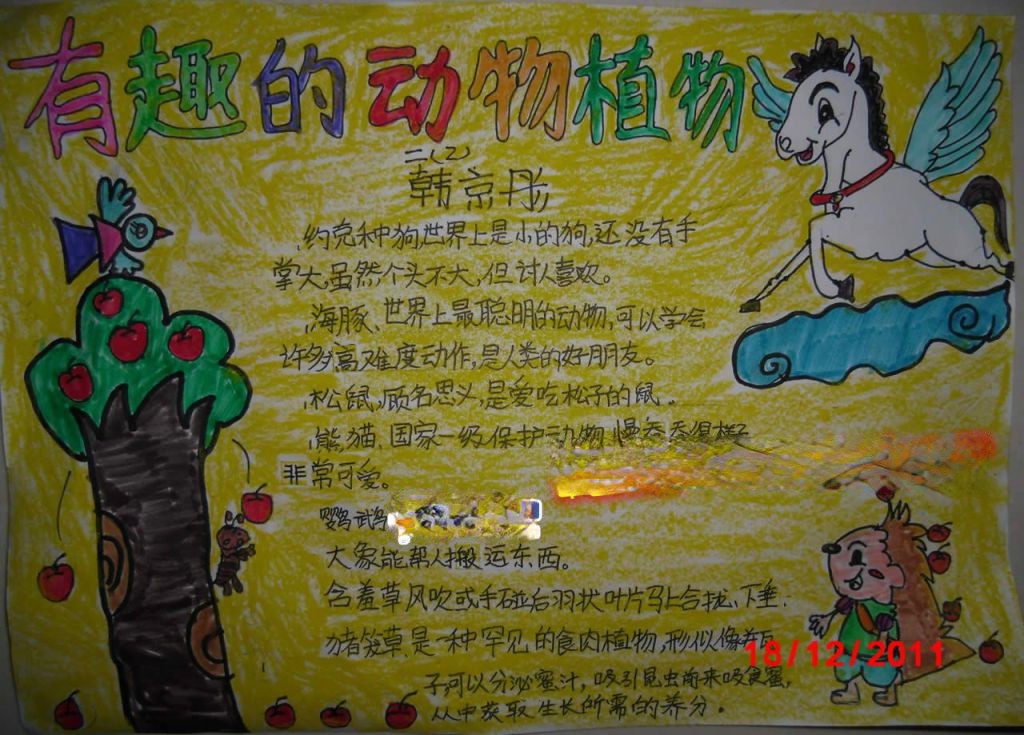 有趣的动物植物
二(乙)
韩京彤
约克种狗,世界上是小的狗,还没有手
掌大,虽然个头不大,但讨人喜欢。
海豚、世界上最聪明的动物,可以学会
许多高难度动作,是人类的好朋友。
松鼠,顾名思义,是爱吃松子的鼠。
熊猫、国家一级保护动物,慢吞吞很
非常可爱。
鹦鹉
大象能帮人搬运东西。
含羞草风吹或手碰后羽状叶片马上合拢、下垂.
猪笼草.是一种罕见的食肉植物,形似像
18/12/2011
子可以分泌蜜汁,吸引昆虫前来吸食蜜,
从中获取生长所需的养分。